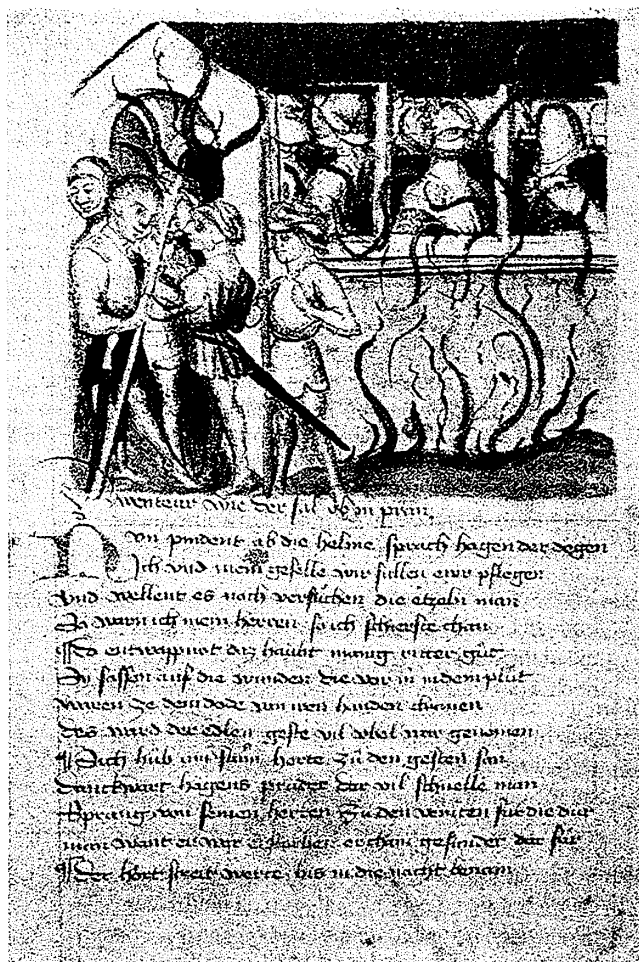 Awenteur wie der sal ob in prun
Nun pindent ab die helme sprach hagen der degen
Ich vnd mein geselle wir sullen ewr pflegen
Vnd wellent es noch versuchen die etzeln man
So warn ich mein herren so ich schierste chan
Do entwappnot daz haubt manig ritter gut
Sy sassen auf die wunden die vor in in dem plut
waren ze dem dode von iren handen chomen
des ward der edlen geste vil vbel war genomen
hagens pruder der vil schnelle man
Sprang von seinen herren zu den für die tür
man want er wär er chan gesunder dar für
Der hört streit werte vns in die nacht benam